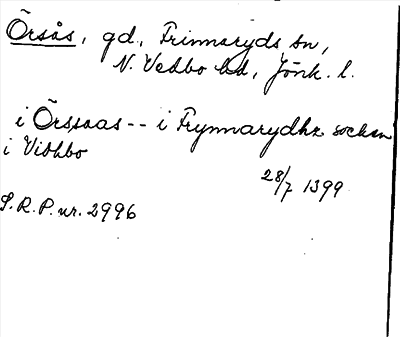 Örsås, gd., Frinnaryds sn,
N. Vedbo hd, Jönk. l.
i Örssaas -- i Frynnarydhx socken
i Vidhbo
28/7 1399
S.R.P. nr. 2996